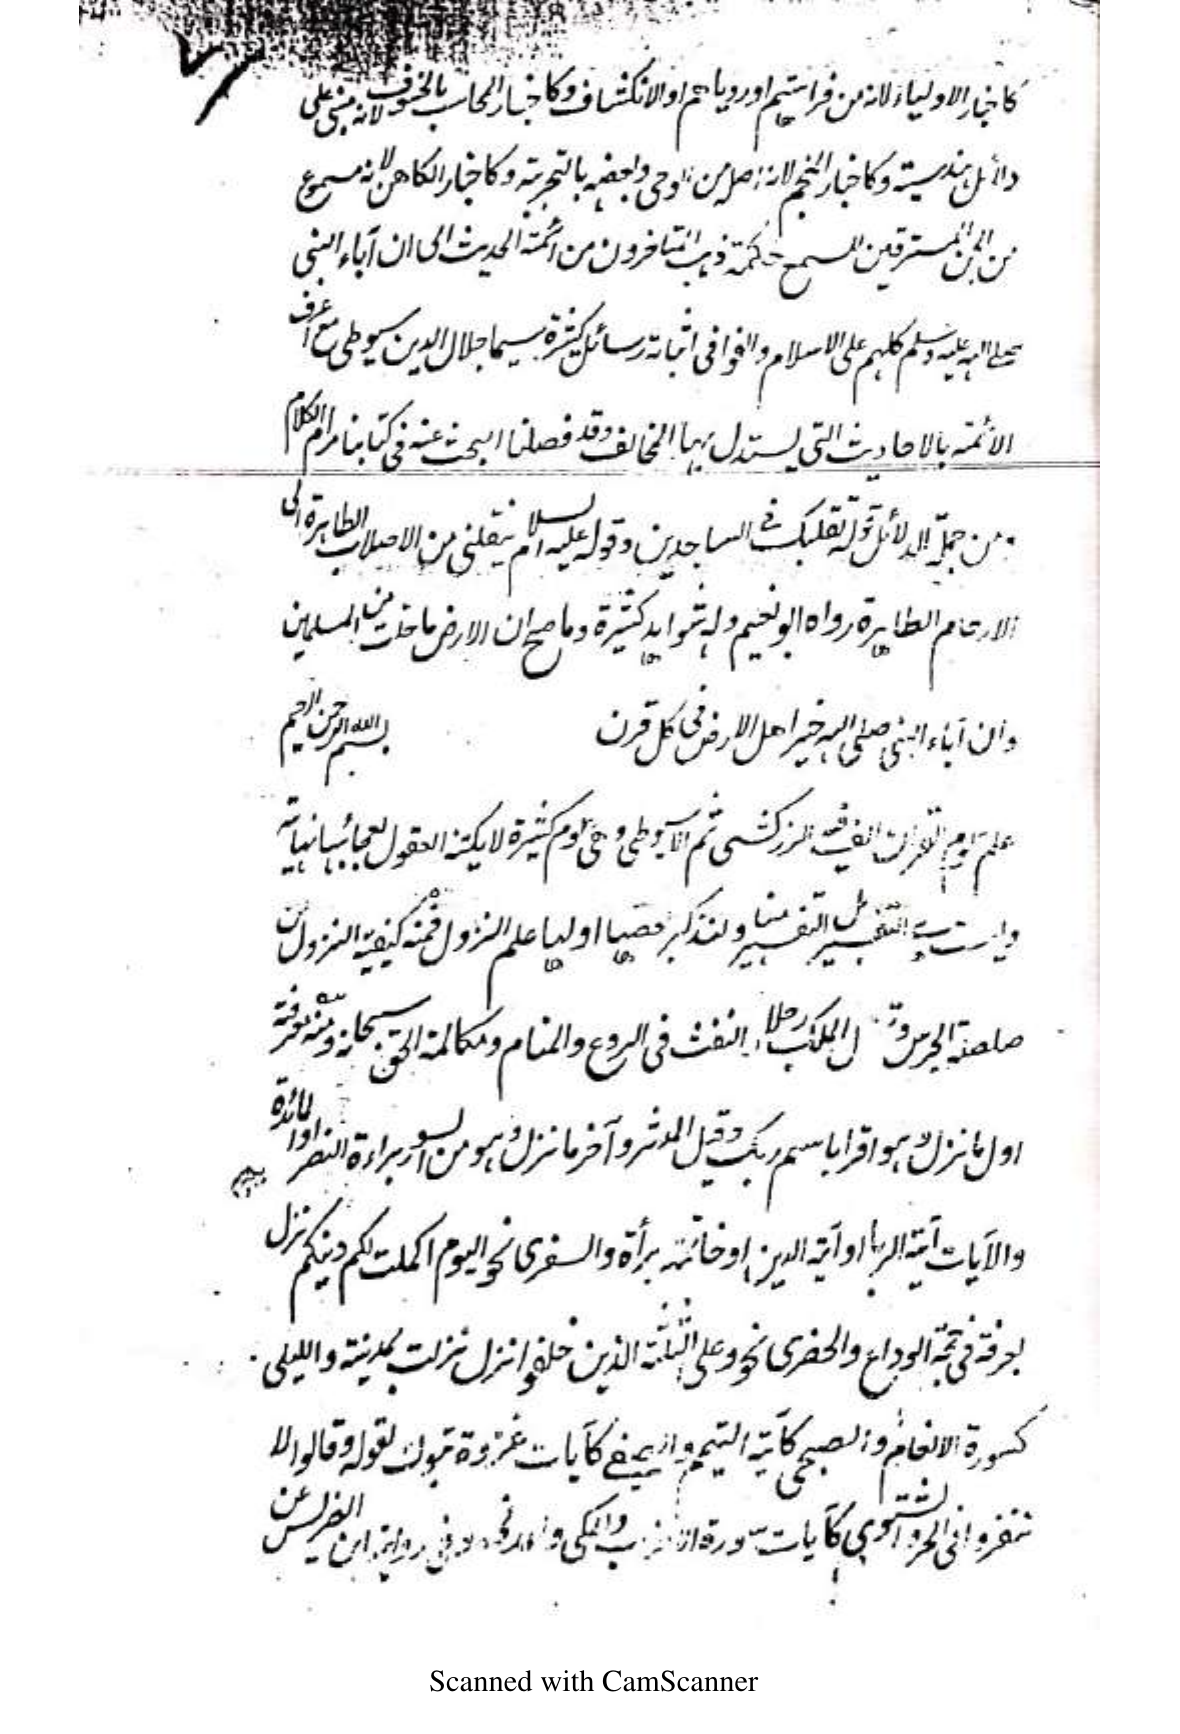 كاخبار الاولياء لانه من فراستهم او روياهم او الانكشاف وكاخبار المحاسب بالخسوف لانه مبنى على
دلائل هندسية وكاخبار المنجم لانه اصله من الوحى وبعضه بالتجربة وكاخبار الكاهن لانه مسموع
من الجن المسترقين للسمع حكمة ذهب المتاخرون من ائمة الحديث الى ان آباء النبى
صلى الله عليه وسلم كلهم على الاسلام والفوا فى اثباته رسائل كثيرة سيما جلال الدين سيوطى مع اعرف
الأئمه بالاحاديث التى يستدل بها المخالف وقد فصلنا البحث عنه فى كتابنا مرام الكلام
ومن جملة الدلائل قوله تقلبك فى الساجدين وقوله عليه السلام ينقلنى من الاصلاب الطاهرة الى
الارحام الطاهرة رواه ابو نعيم وله شواهد كثيرة وما صح ان الارض ما خلت من المسلمين
وان آباء النبى صلى الله خير اهل الارض فى كل قرن بسم الله الرحمن الرحيم
علم علوم القران الفه الزركشى ثم السيوطى وهى علوم كثيرة لا يكتنه العقول لعجائبها نهاية
وليست التفسير التفسير منها ولنذكر بعضها اوليها علم النزول فمنه كيفية النزول
صلصلة الجرس و الملك رجلا النفث فى الروع والمنام ومكالمة الحق سبحانه ومنه معرفة
اول ما نزل وهو اقرا باسم ربك وقيل المدثر وآخر ما نزل وهو من السور براءة النصر او المائدة
والآيات آية الربا او آية الدين او خاتمة برأة والسفرى نحو اليوم اكملت لكم دينكم نزل
بعرفة فى حجة الوداع والحضرى نحو وعلى الثلثة الذين خلفوا نزل نزلت بمدينة والليلى
كسورة الانعام والصبحى كآية التيمم والصيفى كآيات غزوة تبوك لقوله وقالوا لا
تنفروا فى الحر والشتوى كآيات سورة والمكى و فى رواية ابن الضريس عن
Scanned with CamScanner